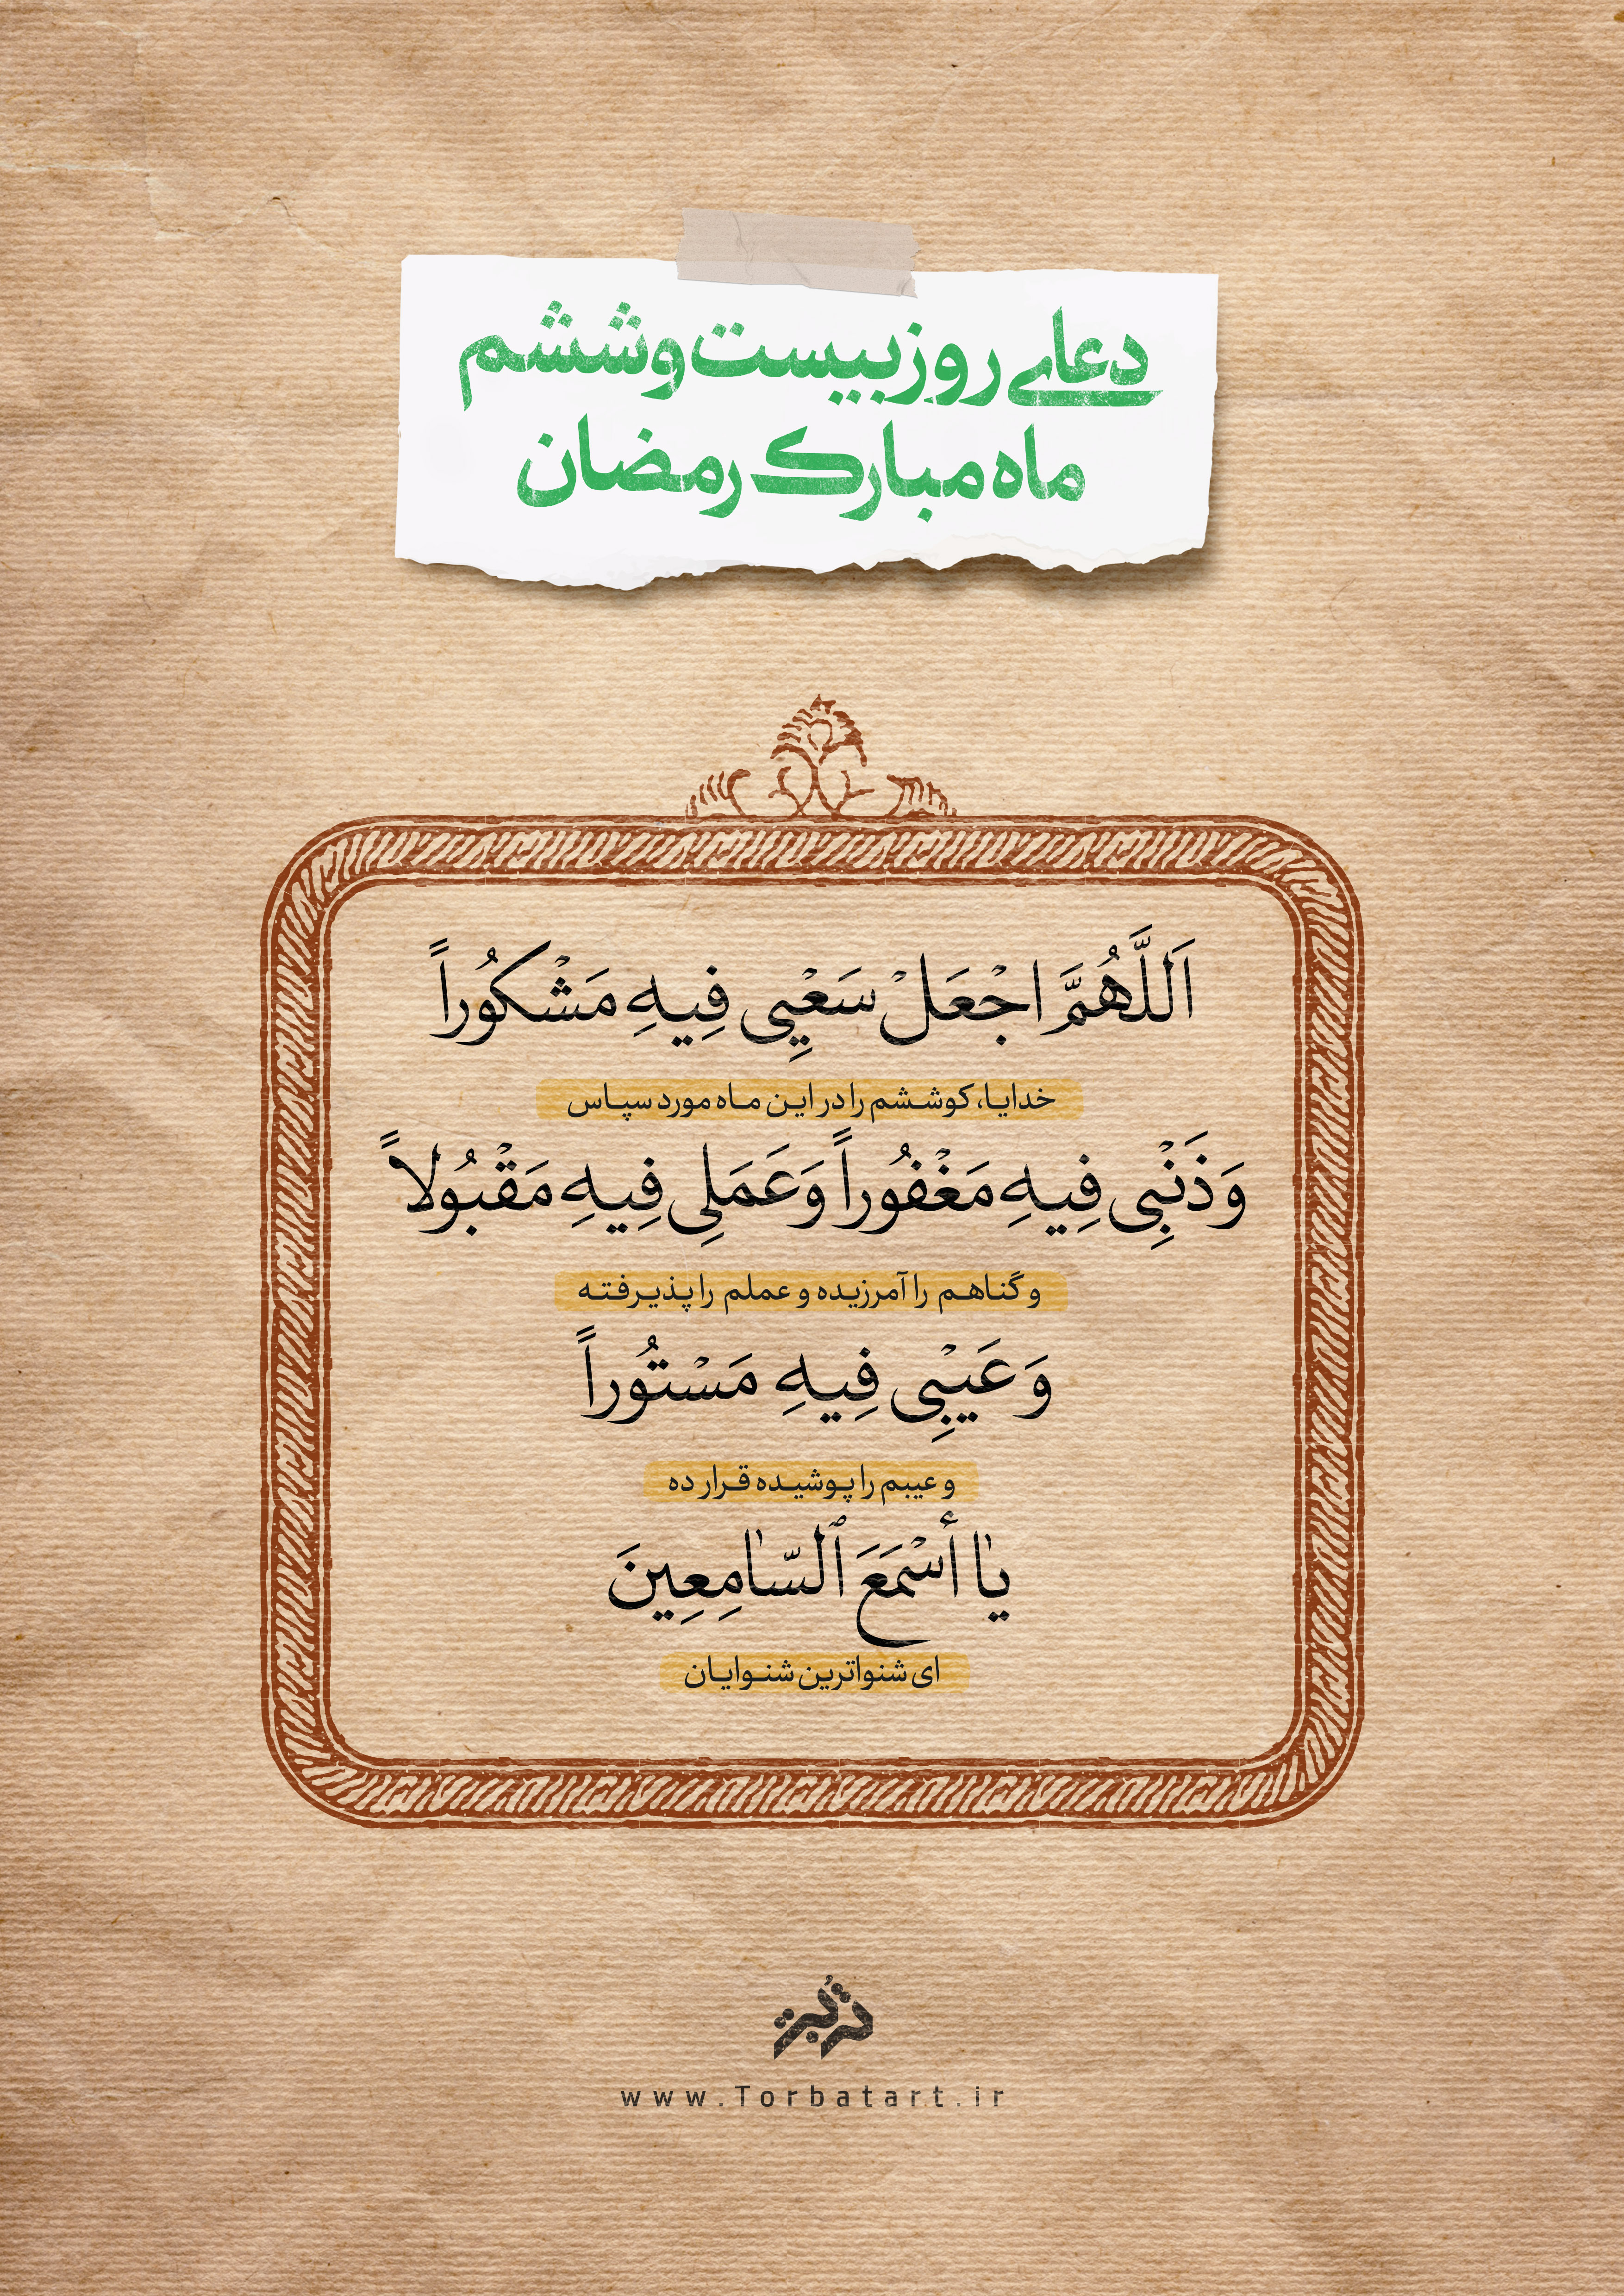 دعای روز بیست و ششم
ماه مبارک رمضان
اَللَّهُمَّ اجْعَلْ سَعْيِي فِيهِ مَشْكُوراً
خدایا، کوششم را در این ماه مورد سپاس
وَذَنْبِي فِيهِ مَغْفُوراً وَعَمَلِي فِيهِ مَقْبُولاً
و گناهم را آمرزیده و عملم را پذیرفته
وَعَيْبِي فِيهِ مَسْتُوراً
و عیبم را پوشیده قرار ده
يٰا أَسْمَعَ ٱلسّٰامِعِينَ
ای شنواترین شنوایان
تربت
www.Torbatart.ir